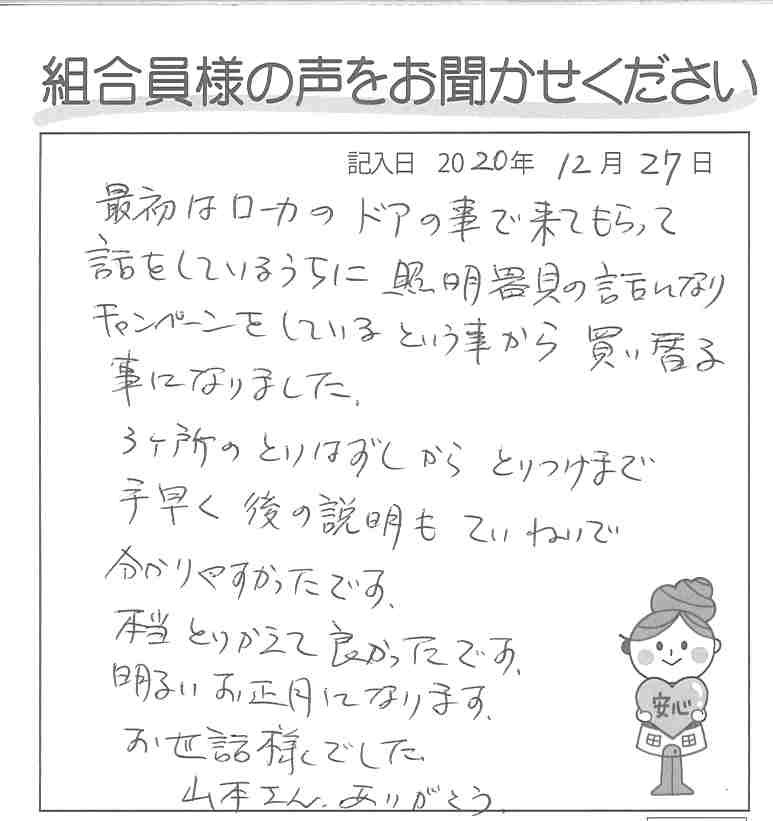 組合員様の声をお聞かせください
記入日 2020年 12月 27日
最初はローカの ドアの事で来てもらって
話をしているうちに 照明器具の話になり
キャンペーンをしている という事から 買い替る
事になりました。
3ヶ所の とりはずし から とりつけまで
手早く 後の説明も ていねいで
分かりやすかったです。
本当 とりかえて 良かったです。
明るい お正月になります。
お世話様でした。
山本さん、ありがとう。
安心